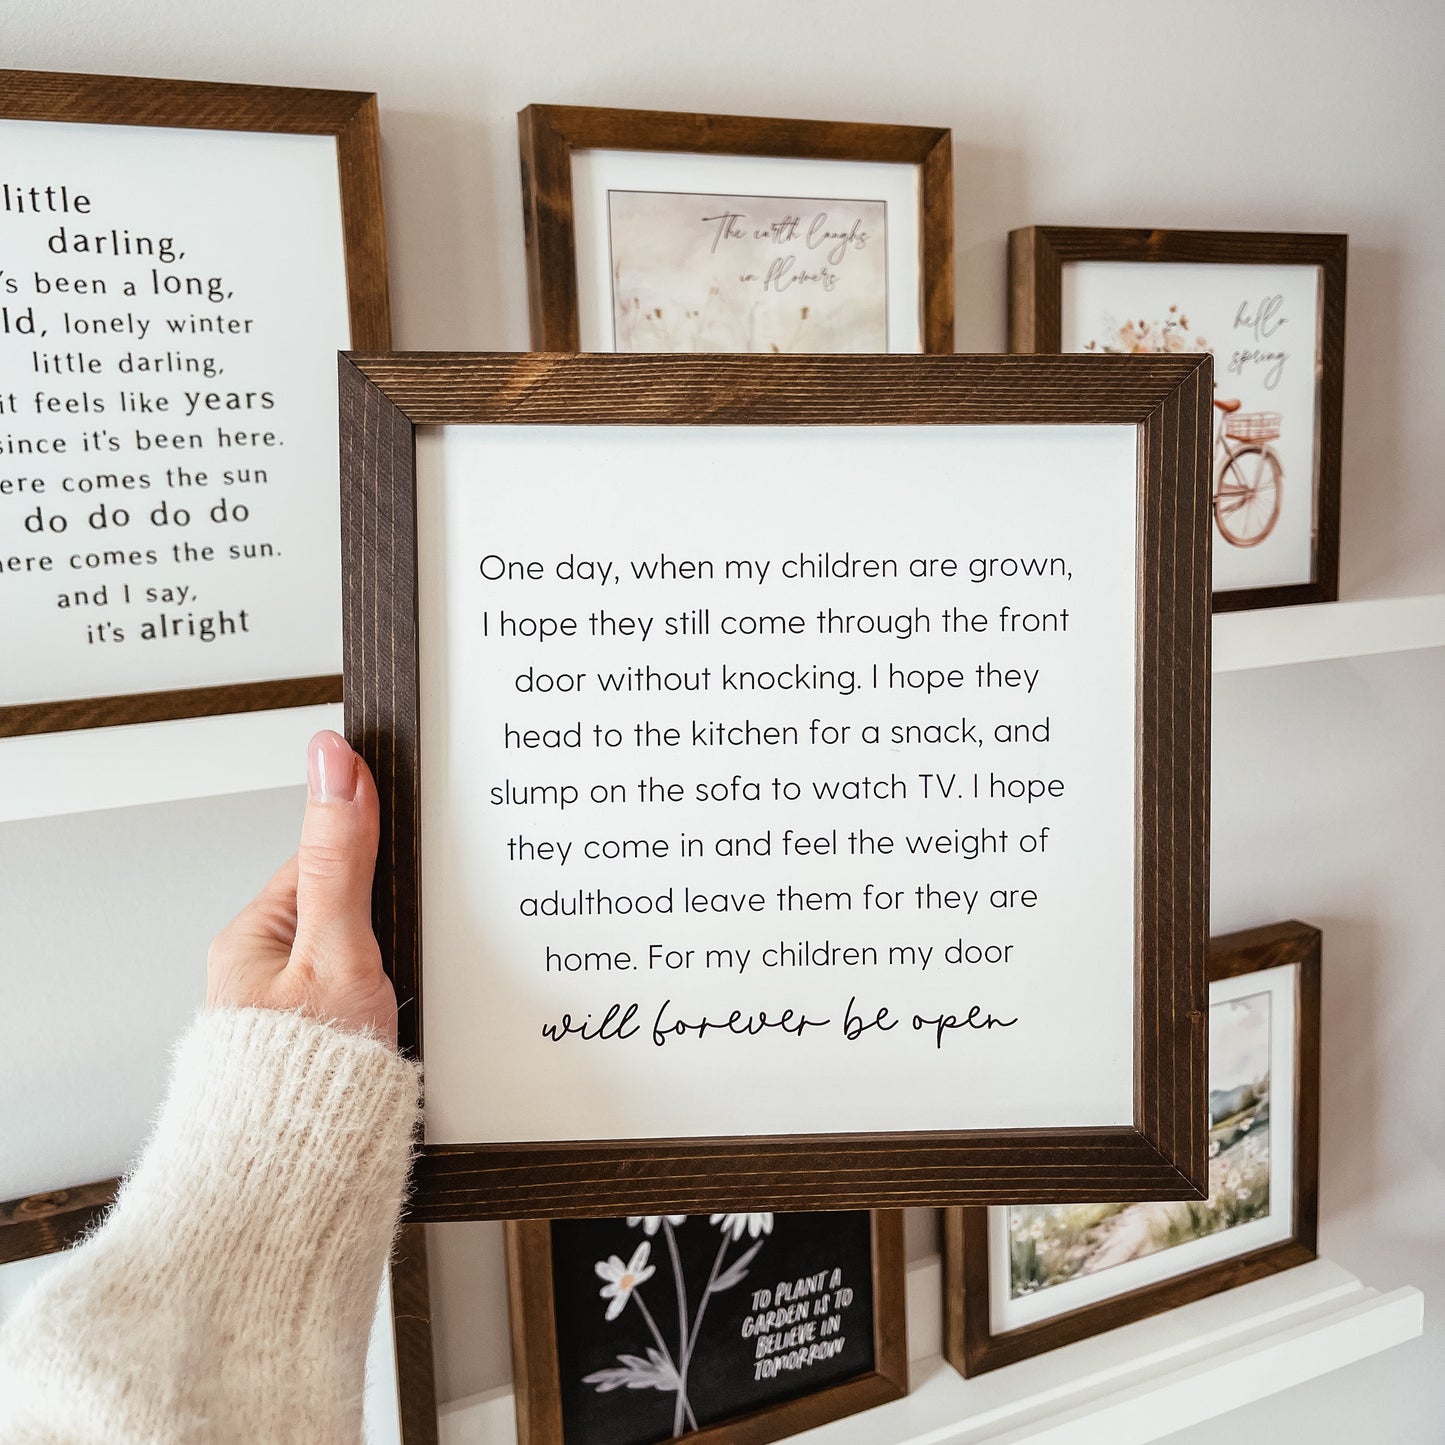 little
darling,
's been a long,
ld, lonely winter
little darling,
it feels like years
since it's been here.
ere comes the sun
do do do do
here comes the sun.
and I say,
it's alright
The earth laughs
in flowers
hello
spring
One day, when my children are grown,
I hope they still come through the front
door without knocking. I hope they
head to the kitchen for a snack, and
slump on the sofa to watch TV. I hope
they come in and feel the weight of
adulthood leave them for they are
home. For my children my door
will forever be open
TO PLANT A
GARDEN IS TO
BELIEVE IN
TOMORROW